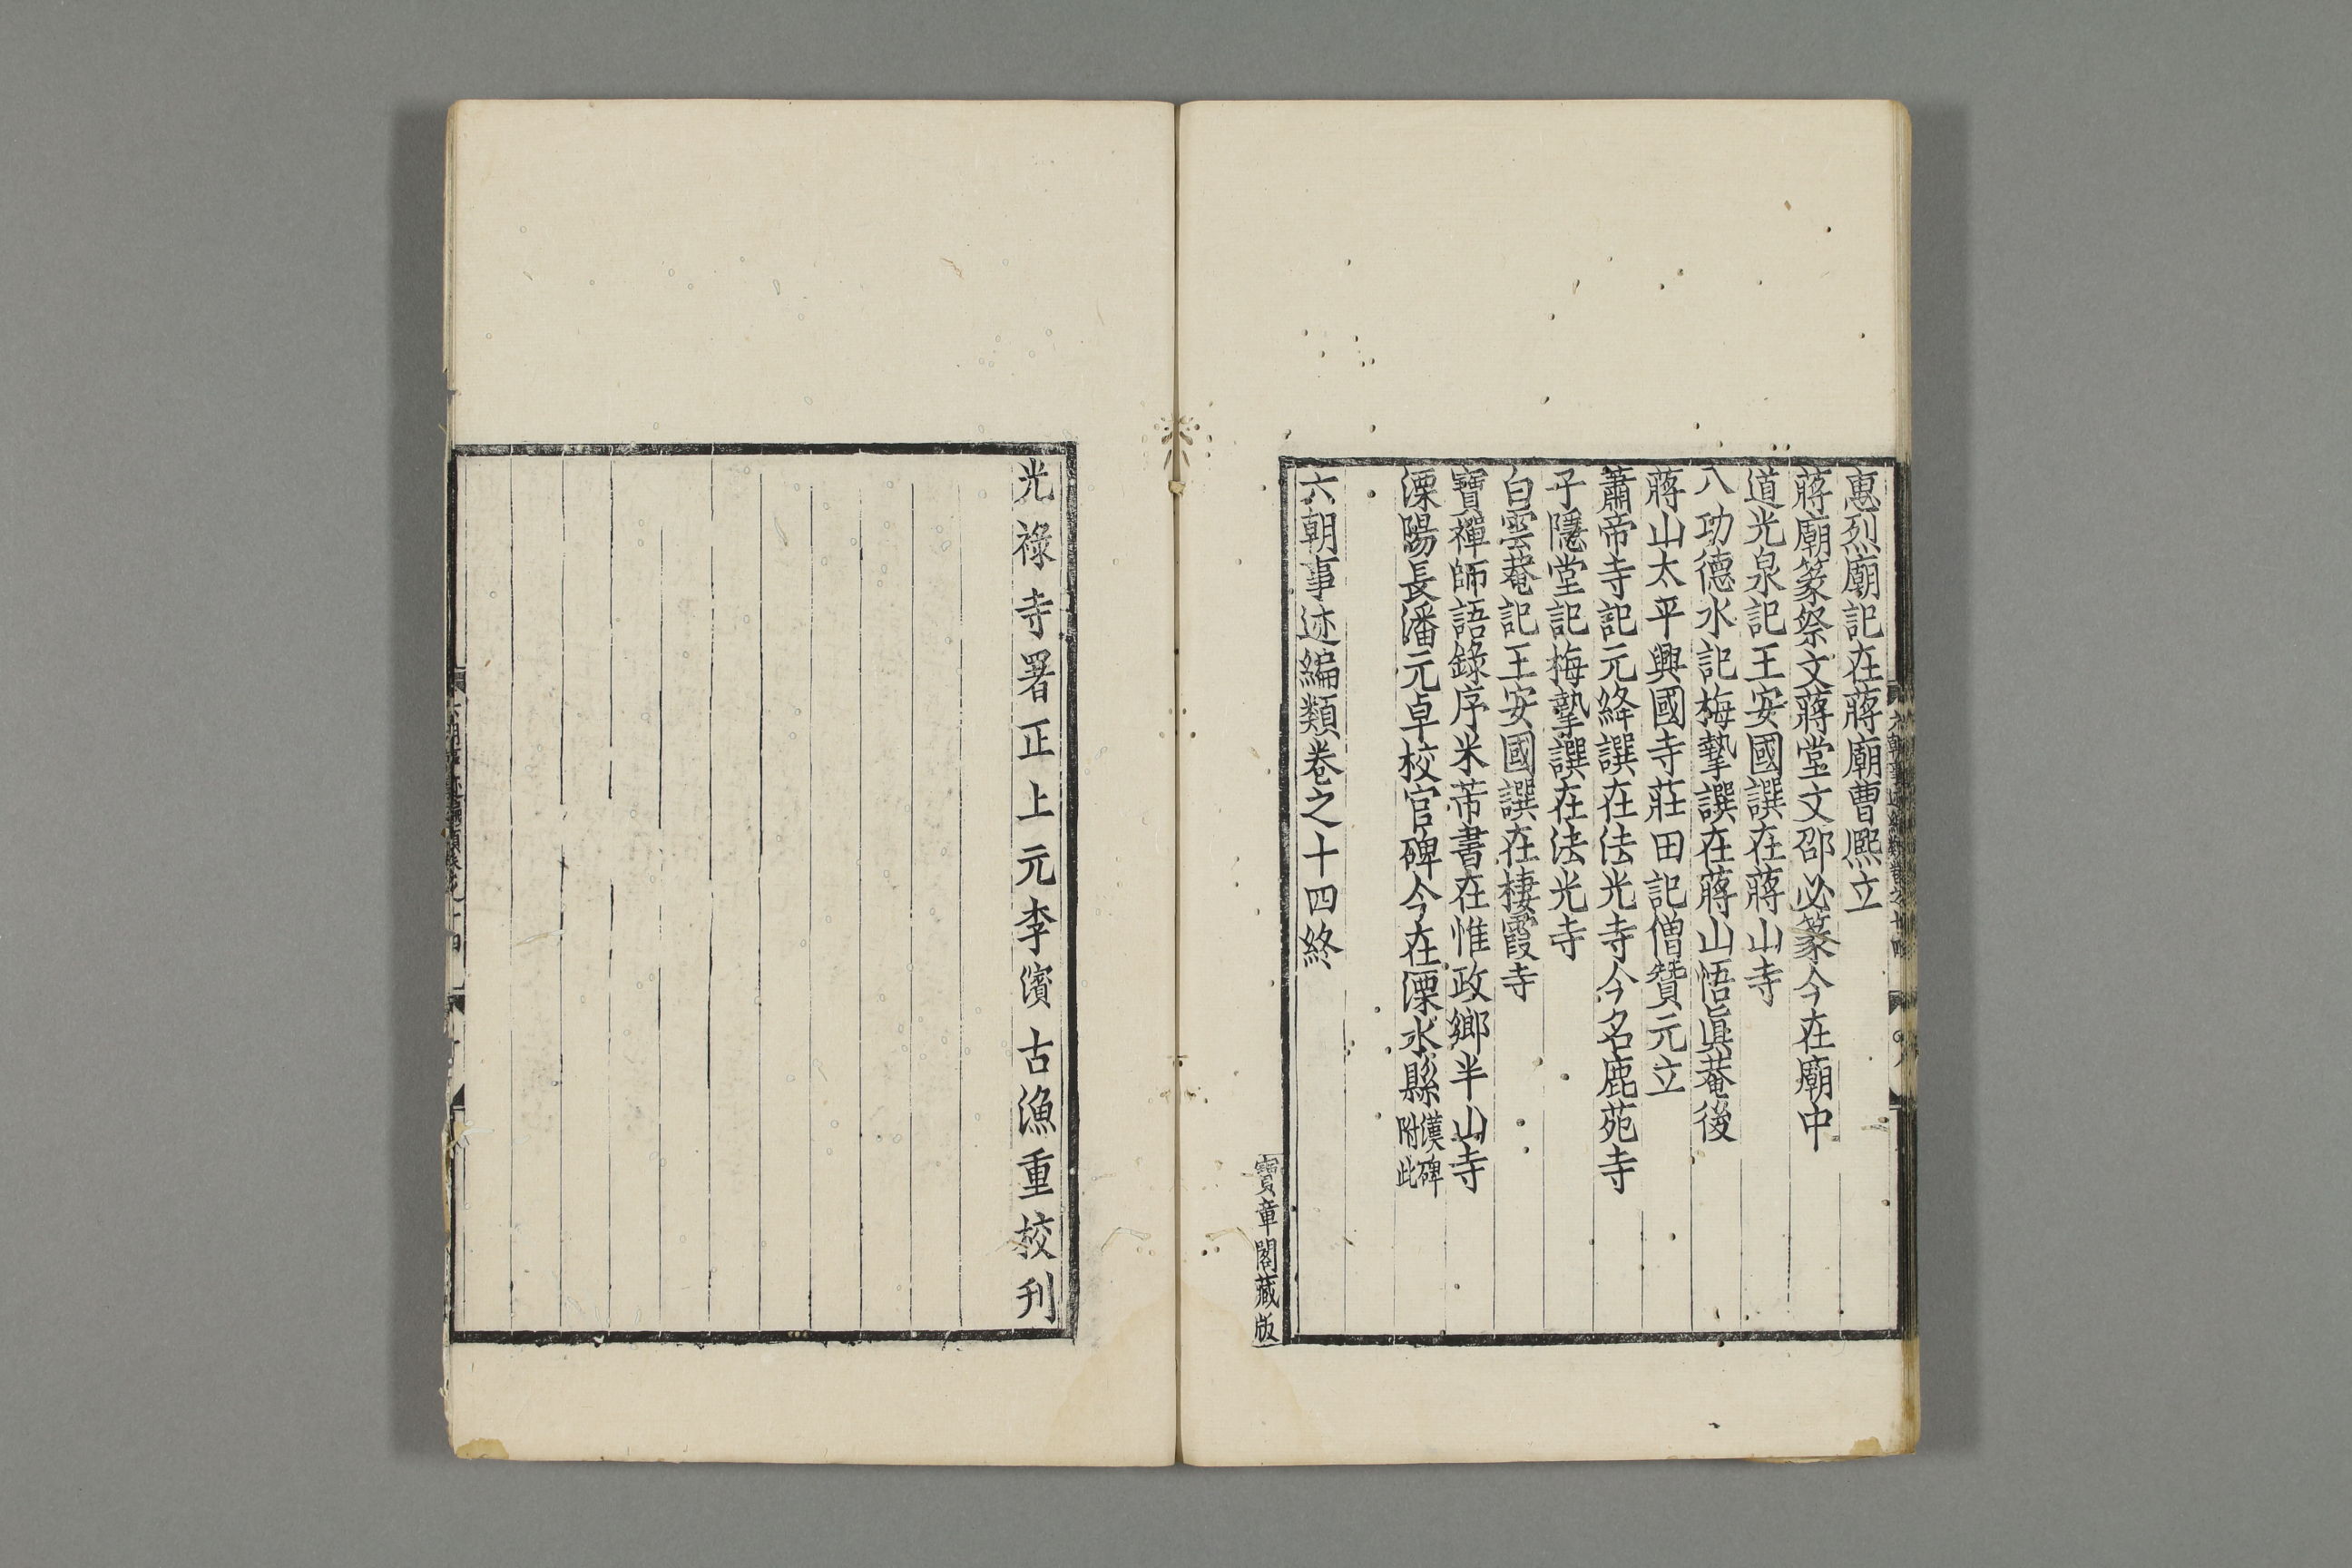 惠烈廟記在蔣廟曹熈立
蔣廟篆祭文蔣堂文邵必篆今在廟中
道光泉記王安國譔在蔣山寺
八功德水記梅摯譔在蔣山悟眞菴後
蔣山太平興國寺莊田記僧贊元立
蕭帝寺記元絳譔在法光寺今名鹿苑寺
子隱堂記梅摯譔在法光寺
白雲菴記王安國譔在棲霞寺
寶禪師語錄序米芾書在惟政鄉半山寺
溧陽長潘元卓校官碑今在溧水縣漢碑附此
六朝事迹編類卷之十四終
寶章閣藏版
光祿寺署正上元李濱古漁重校刊